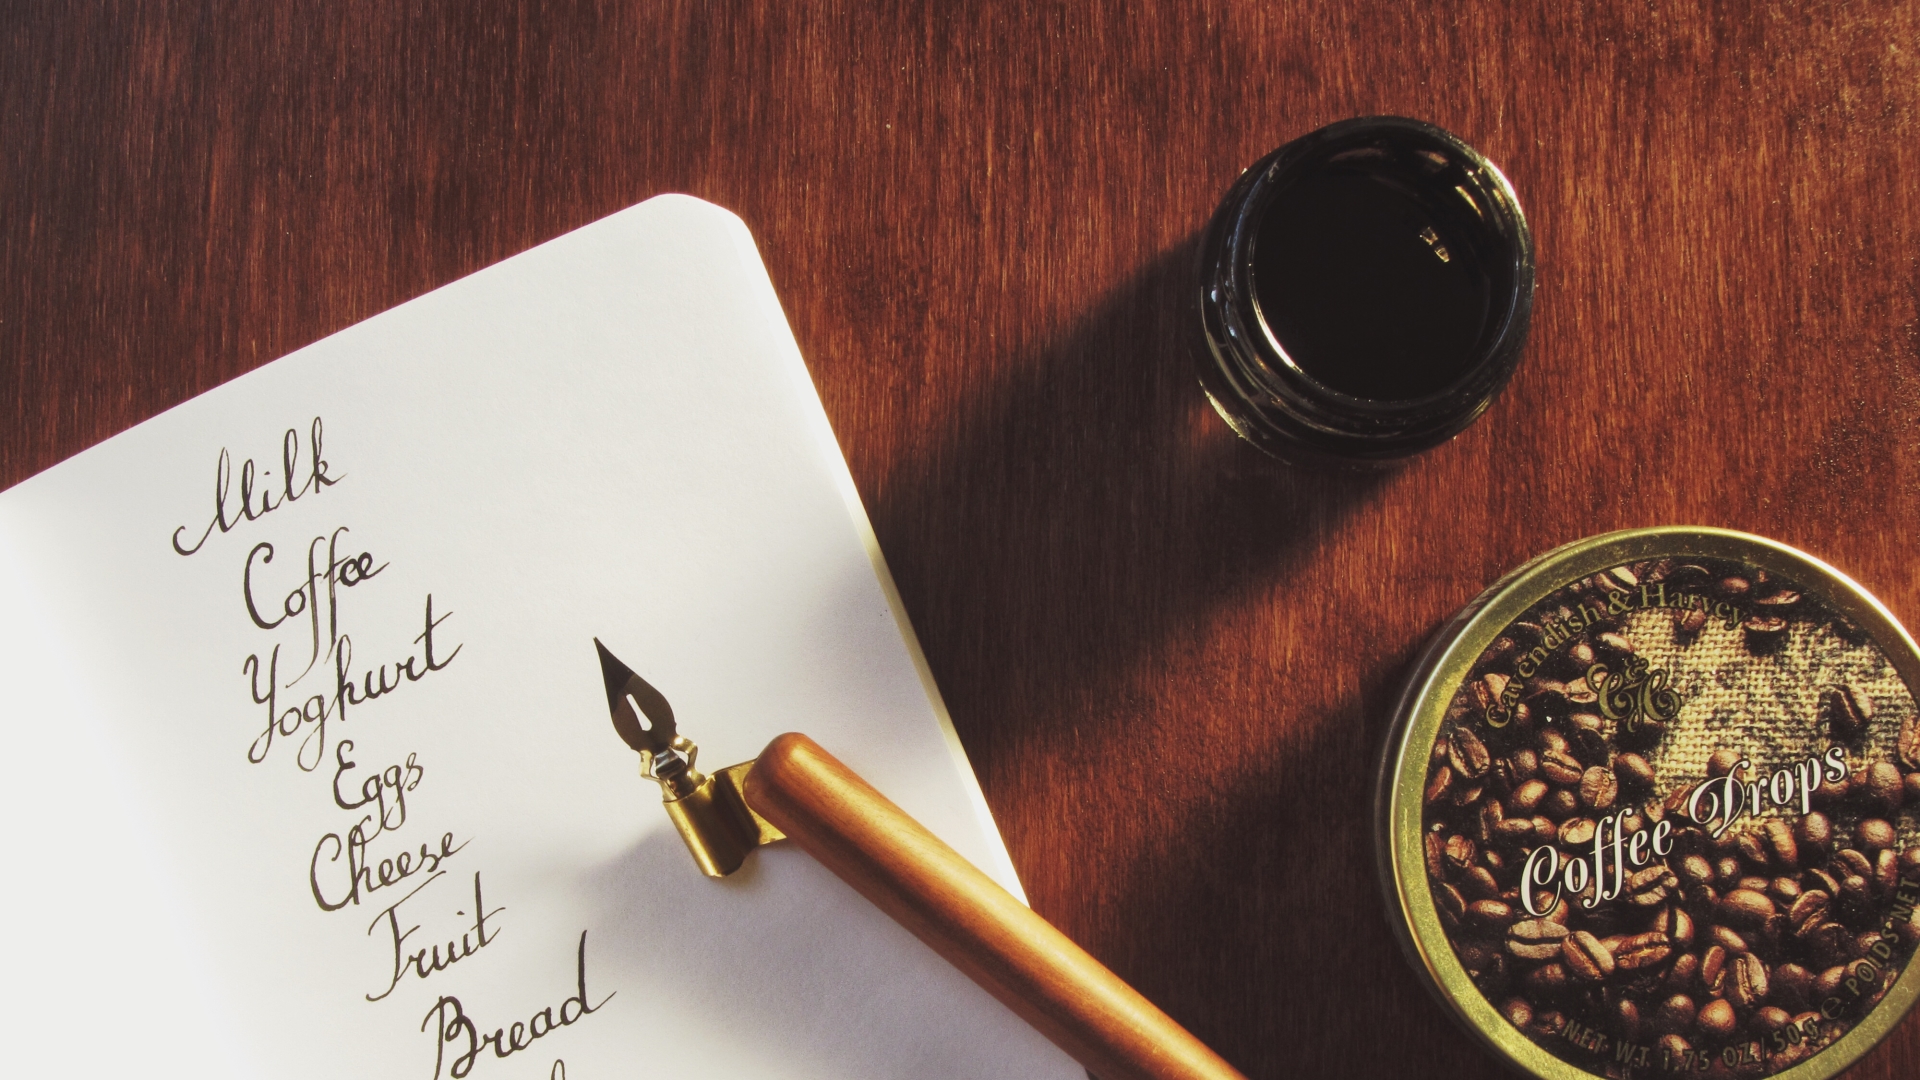 Milk
Coffee
Yoghurt
Eggs
Cheese
Fruit
Bread
Cavendish & Harvey
C&H
Coffee Drops
NET WT. 1.75 OZ / 50 g e POIDS NET